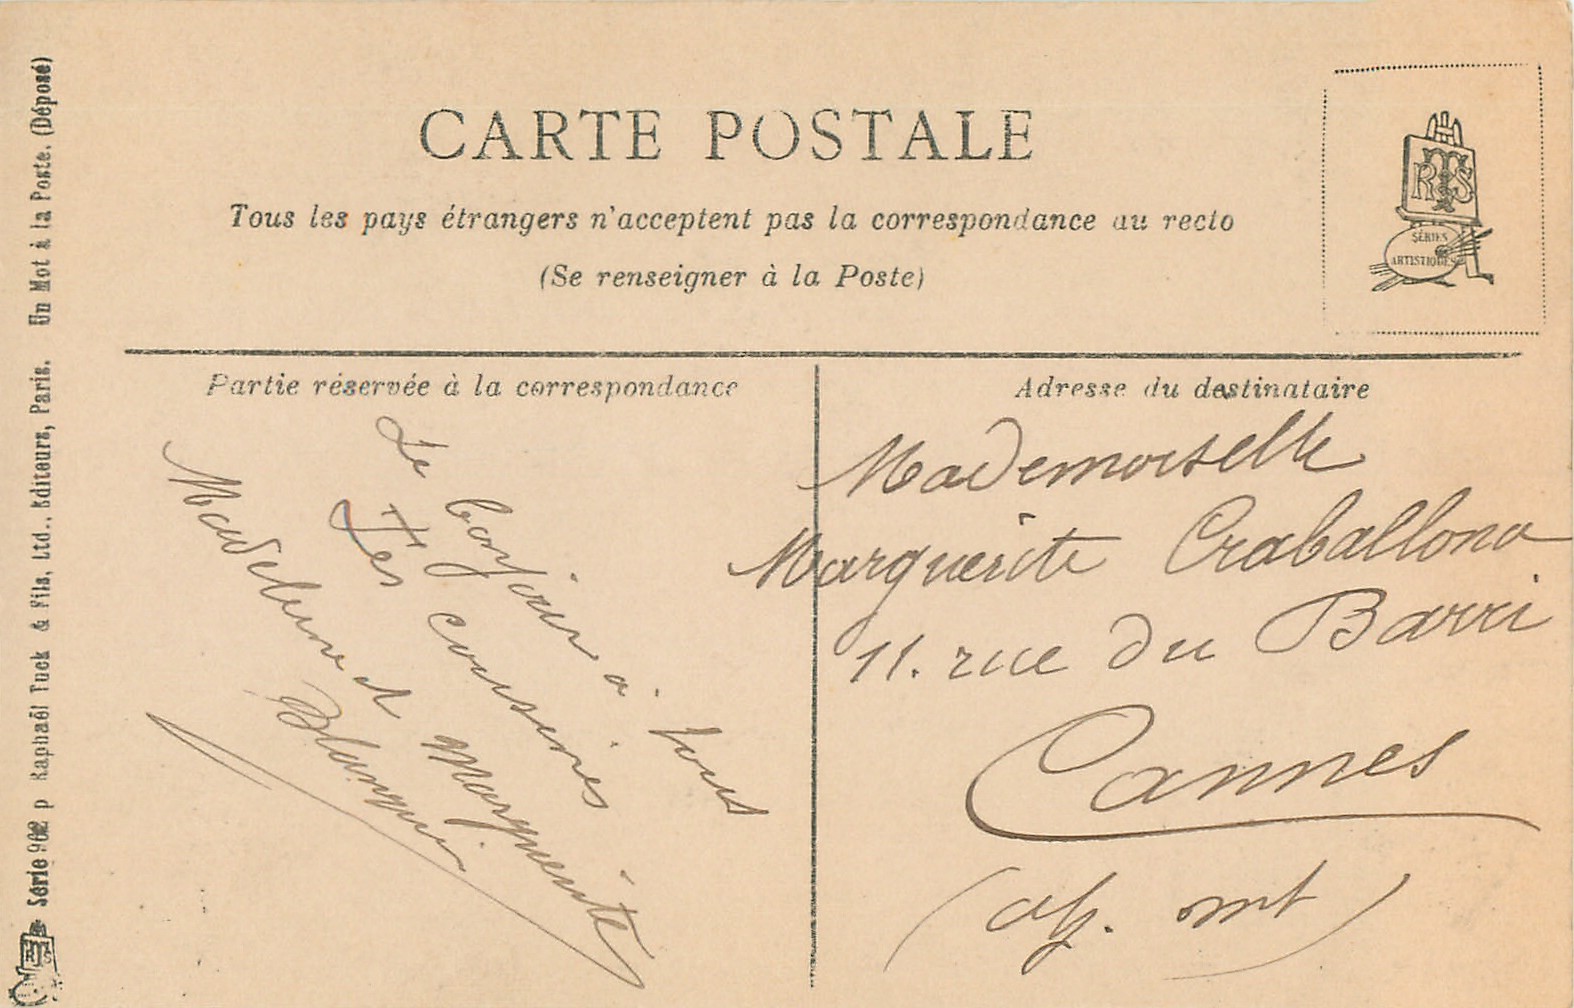 CARTE POSTALE
Tous les pays étrangers n'acceptent pas la correspondance au recto
(Se renseigner à la Poste)
RTS
SÉRIES
ARTISTIQUES
Partie réservée à la correspondance
Le bonjour à tous
Tes cousines
Madeleine et Marguerite
Adresse du destinataire
Mademoiselle
Marguerite Craballona
11. rue du Barri
Cannes
(alp. mt)
Série 962 p Raphaël Tuck & Fils, Ltd., Editeurs, Paris. Un Mot à la Poste. (Déposé)
RTS